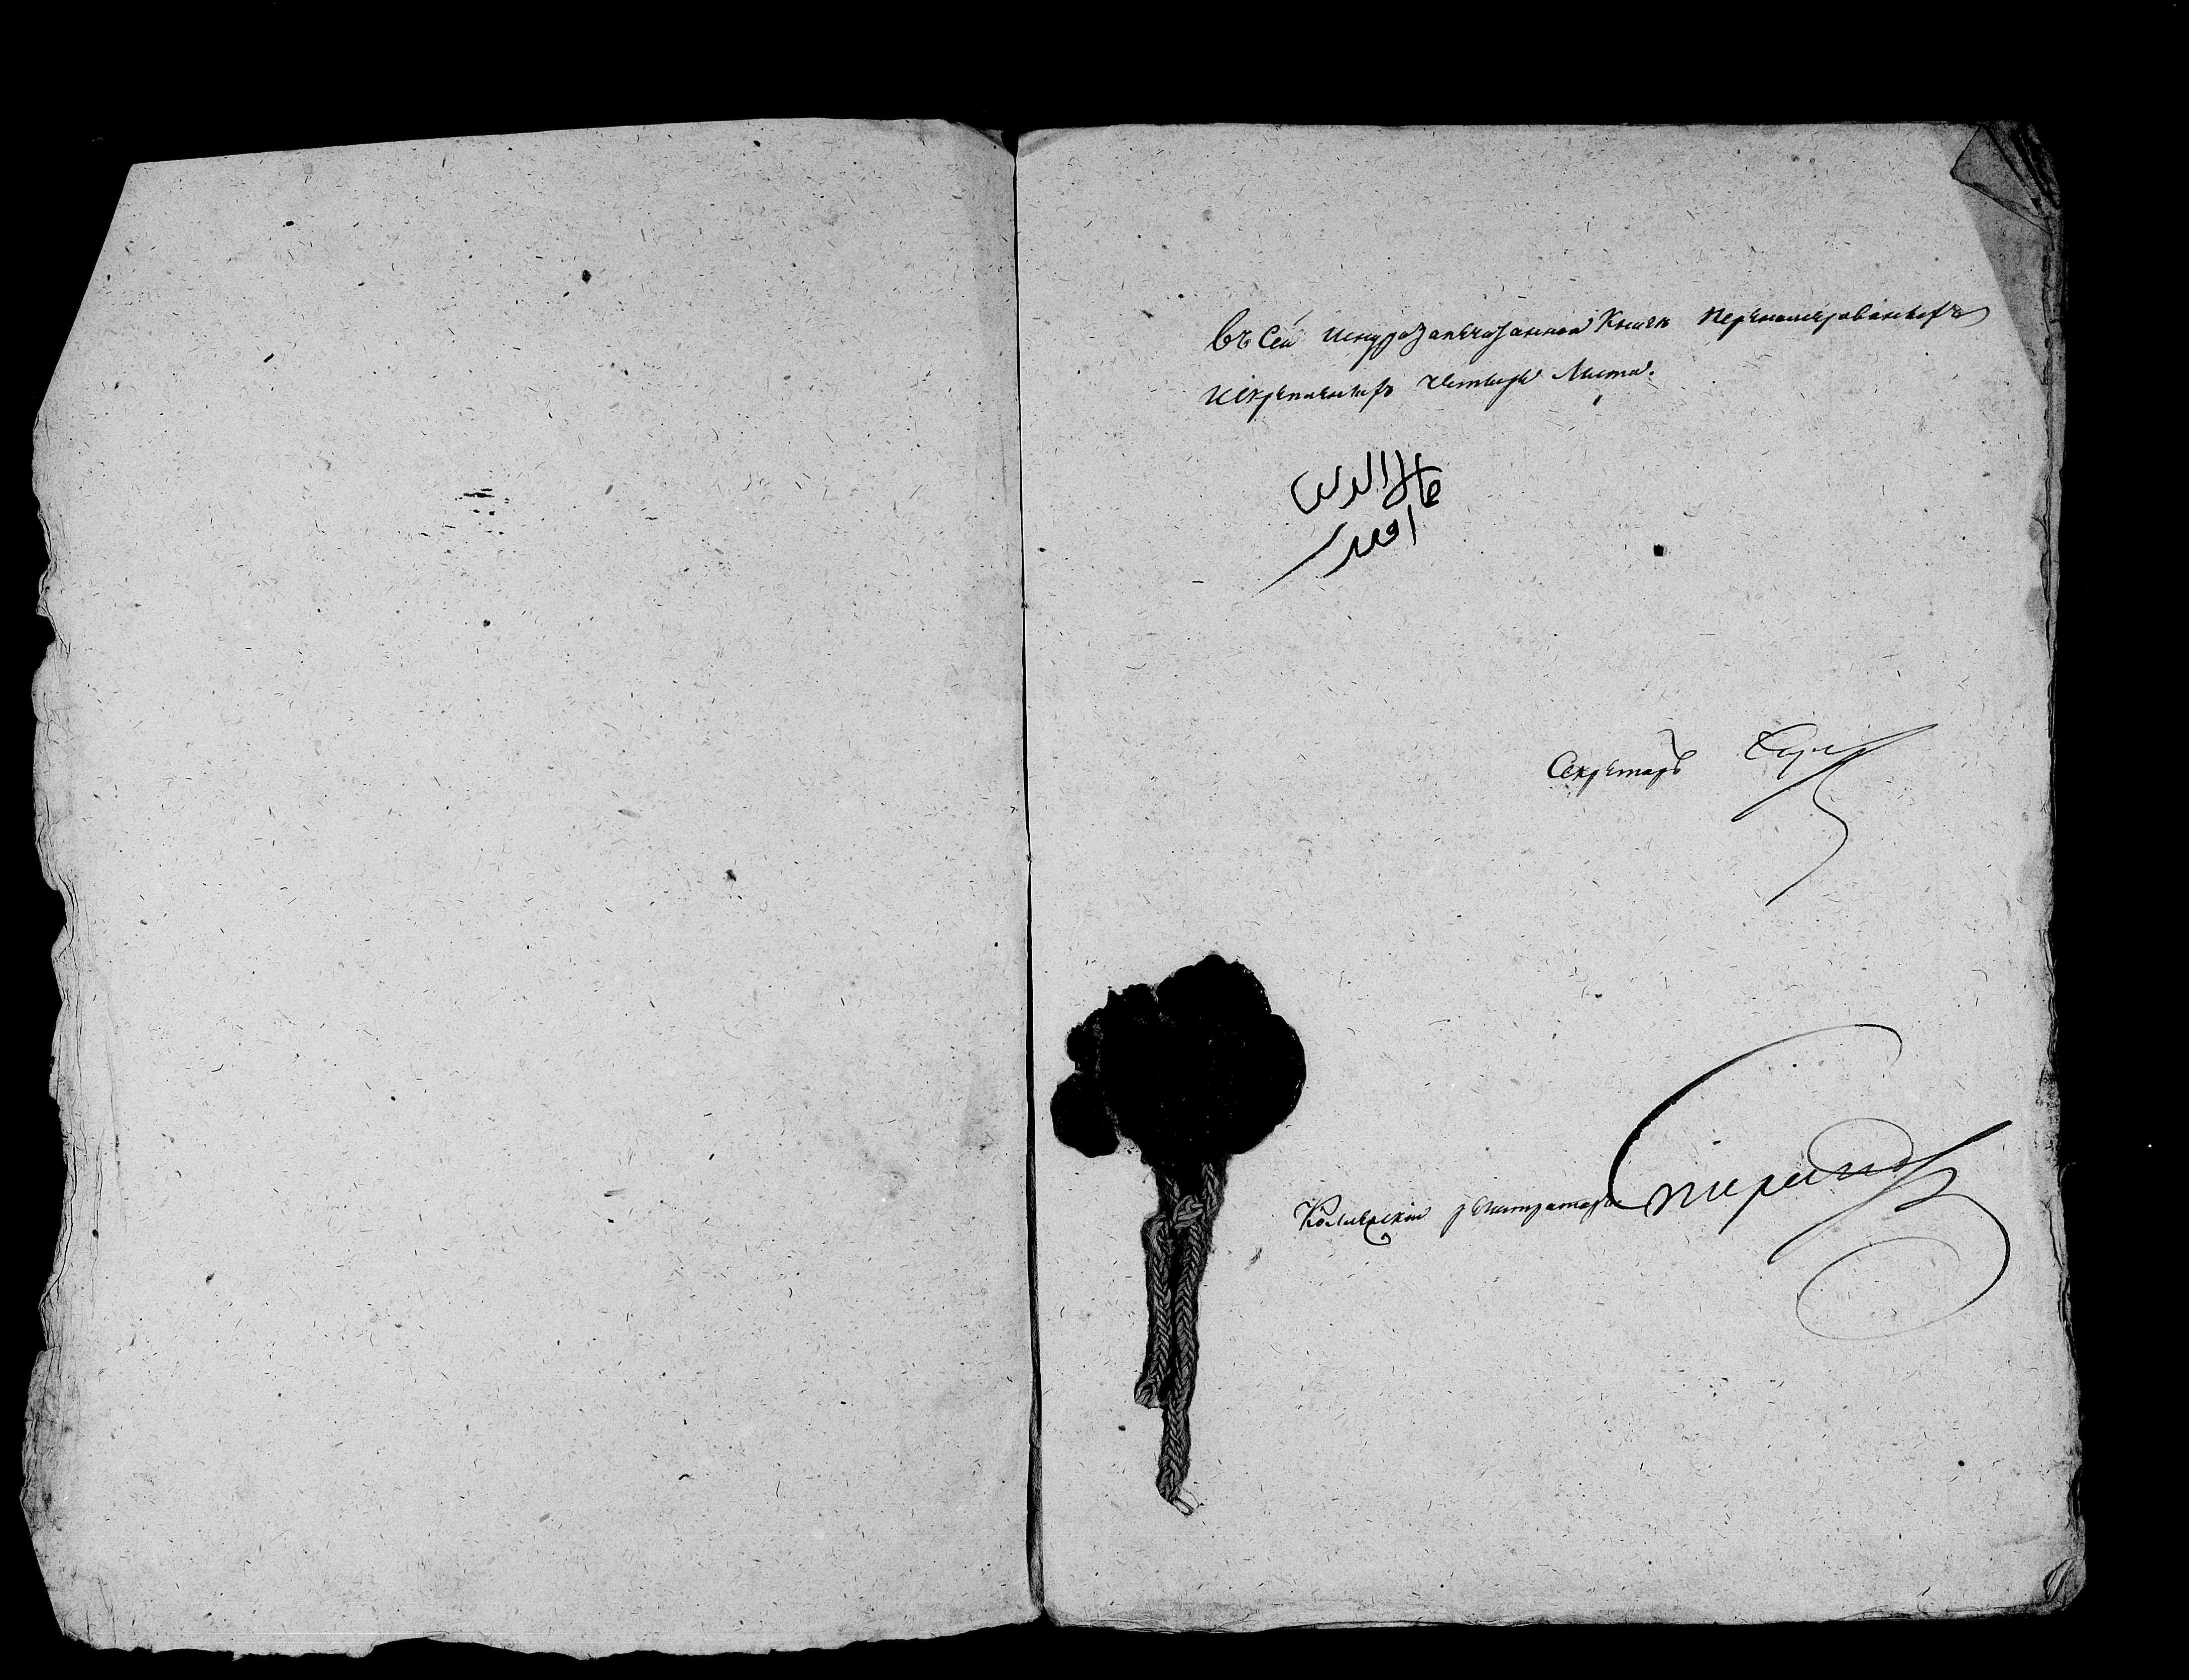 Въ сей шнурозапечатанной Книге перенумерованныхъ
искрепленныхъ четыре Листа.
جلال الدين
افندى
Секретарь
Колежский регистраторъ Спиридо